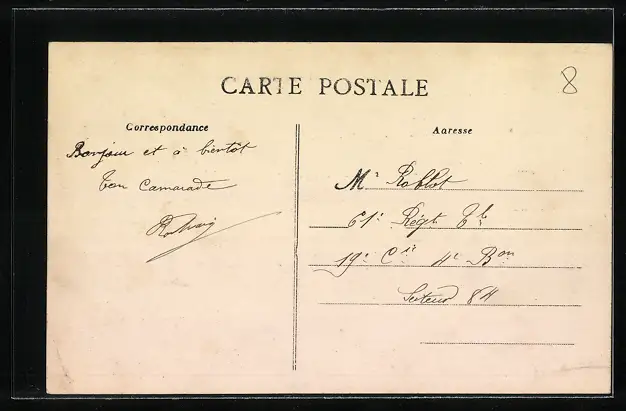 CARTE POSTALE
8
Correspondance
Adresse
Bonjour et à bientôt
Ton Camarade
Mr Roblot
61e Régt Tal
19e Cie 4e Bon
Secteur 84